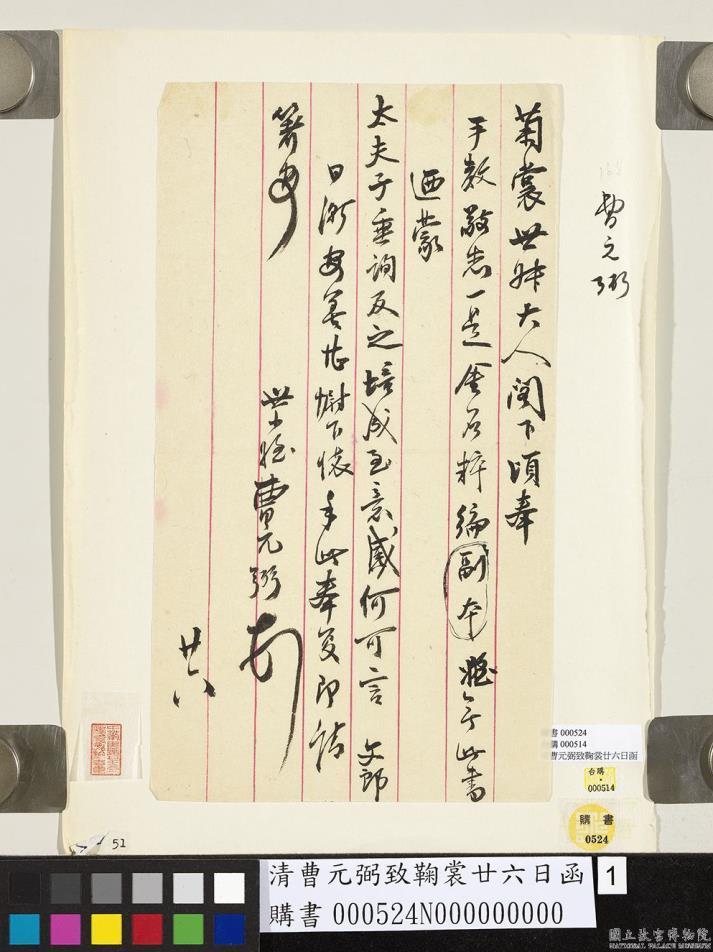 菊裳世叔大人閣下頃奉
手教敬悉一是金石粹編副本 此書
迺蒙
太夫子垂詢及之培成至意感何可言 文郎
日漸安善甚慰下懷手此奉复即請
箸安
世小姪曹元弼頓
廿六
曹元弼
書 000524
購 000514
曹元弼致鞠裳廿六日函
台購
000514
購書
0524
51
清曹元弼致鞠裳廿六日函
購書 000524N000000000
1
國立故宮博物院
NATIONAL PALACE MUSEUM